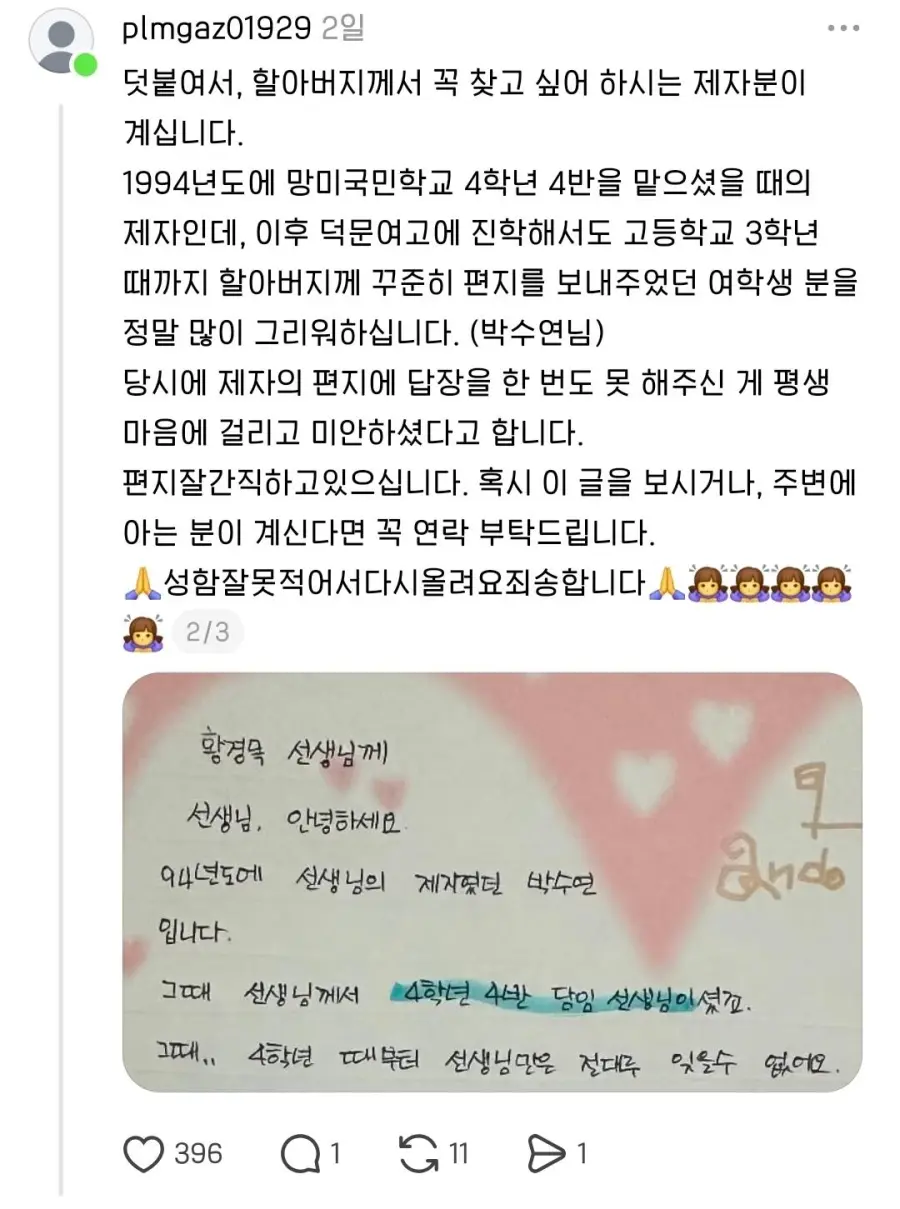 plmgaz01929 2일
덧붙여서, 할아버지께서 꼭 찾고 싶어 하시는 제자분이
계십니다.
1994년도에 망미국민학교 4학년 4반을 맡으셨을 때의
제자인데, 이후 덕문여고에 진학해서도 고등학교 3학년
때까지 할아버지께 꾸준히 편지를 보내주었던 여학생 분을
정말 많이 그리워하십니다. (박수연님)
당시에 제자의 편지에 답장을 한 번도 못 해주신 게 평생
마음에 걸리고 미안하셨다고 합니다.
편지잘간직하고있으십니다. 혹시 이 글을 보시거나, 주변에
아는 분이 계신다면 꼭 연락 부탁드립니다.
🙏성함잘못적어서다시올려요죄송합니다🙏🙇‍♀️🙇‍♀️🙇‍♀️🙇‍♀️
🙇‍♀️ 2/3
황경묵 선생님께
선생님, 안녕하세요
94년도에 선생님의 제자였던 박수연
입니다.
그때 선생님께서 4학년 4반 담임 선생님이셨죠.
그때,, 4학년 때부터 선생님만은 절대루 잊을수 없어요.
ando
396 1 11 1